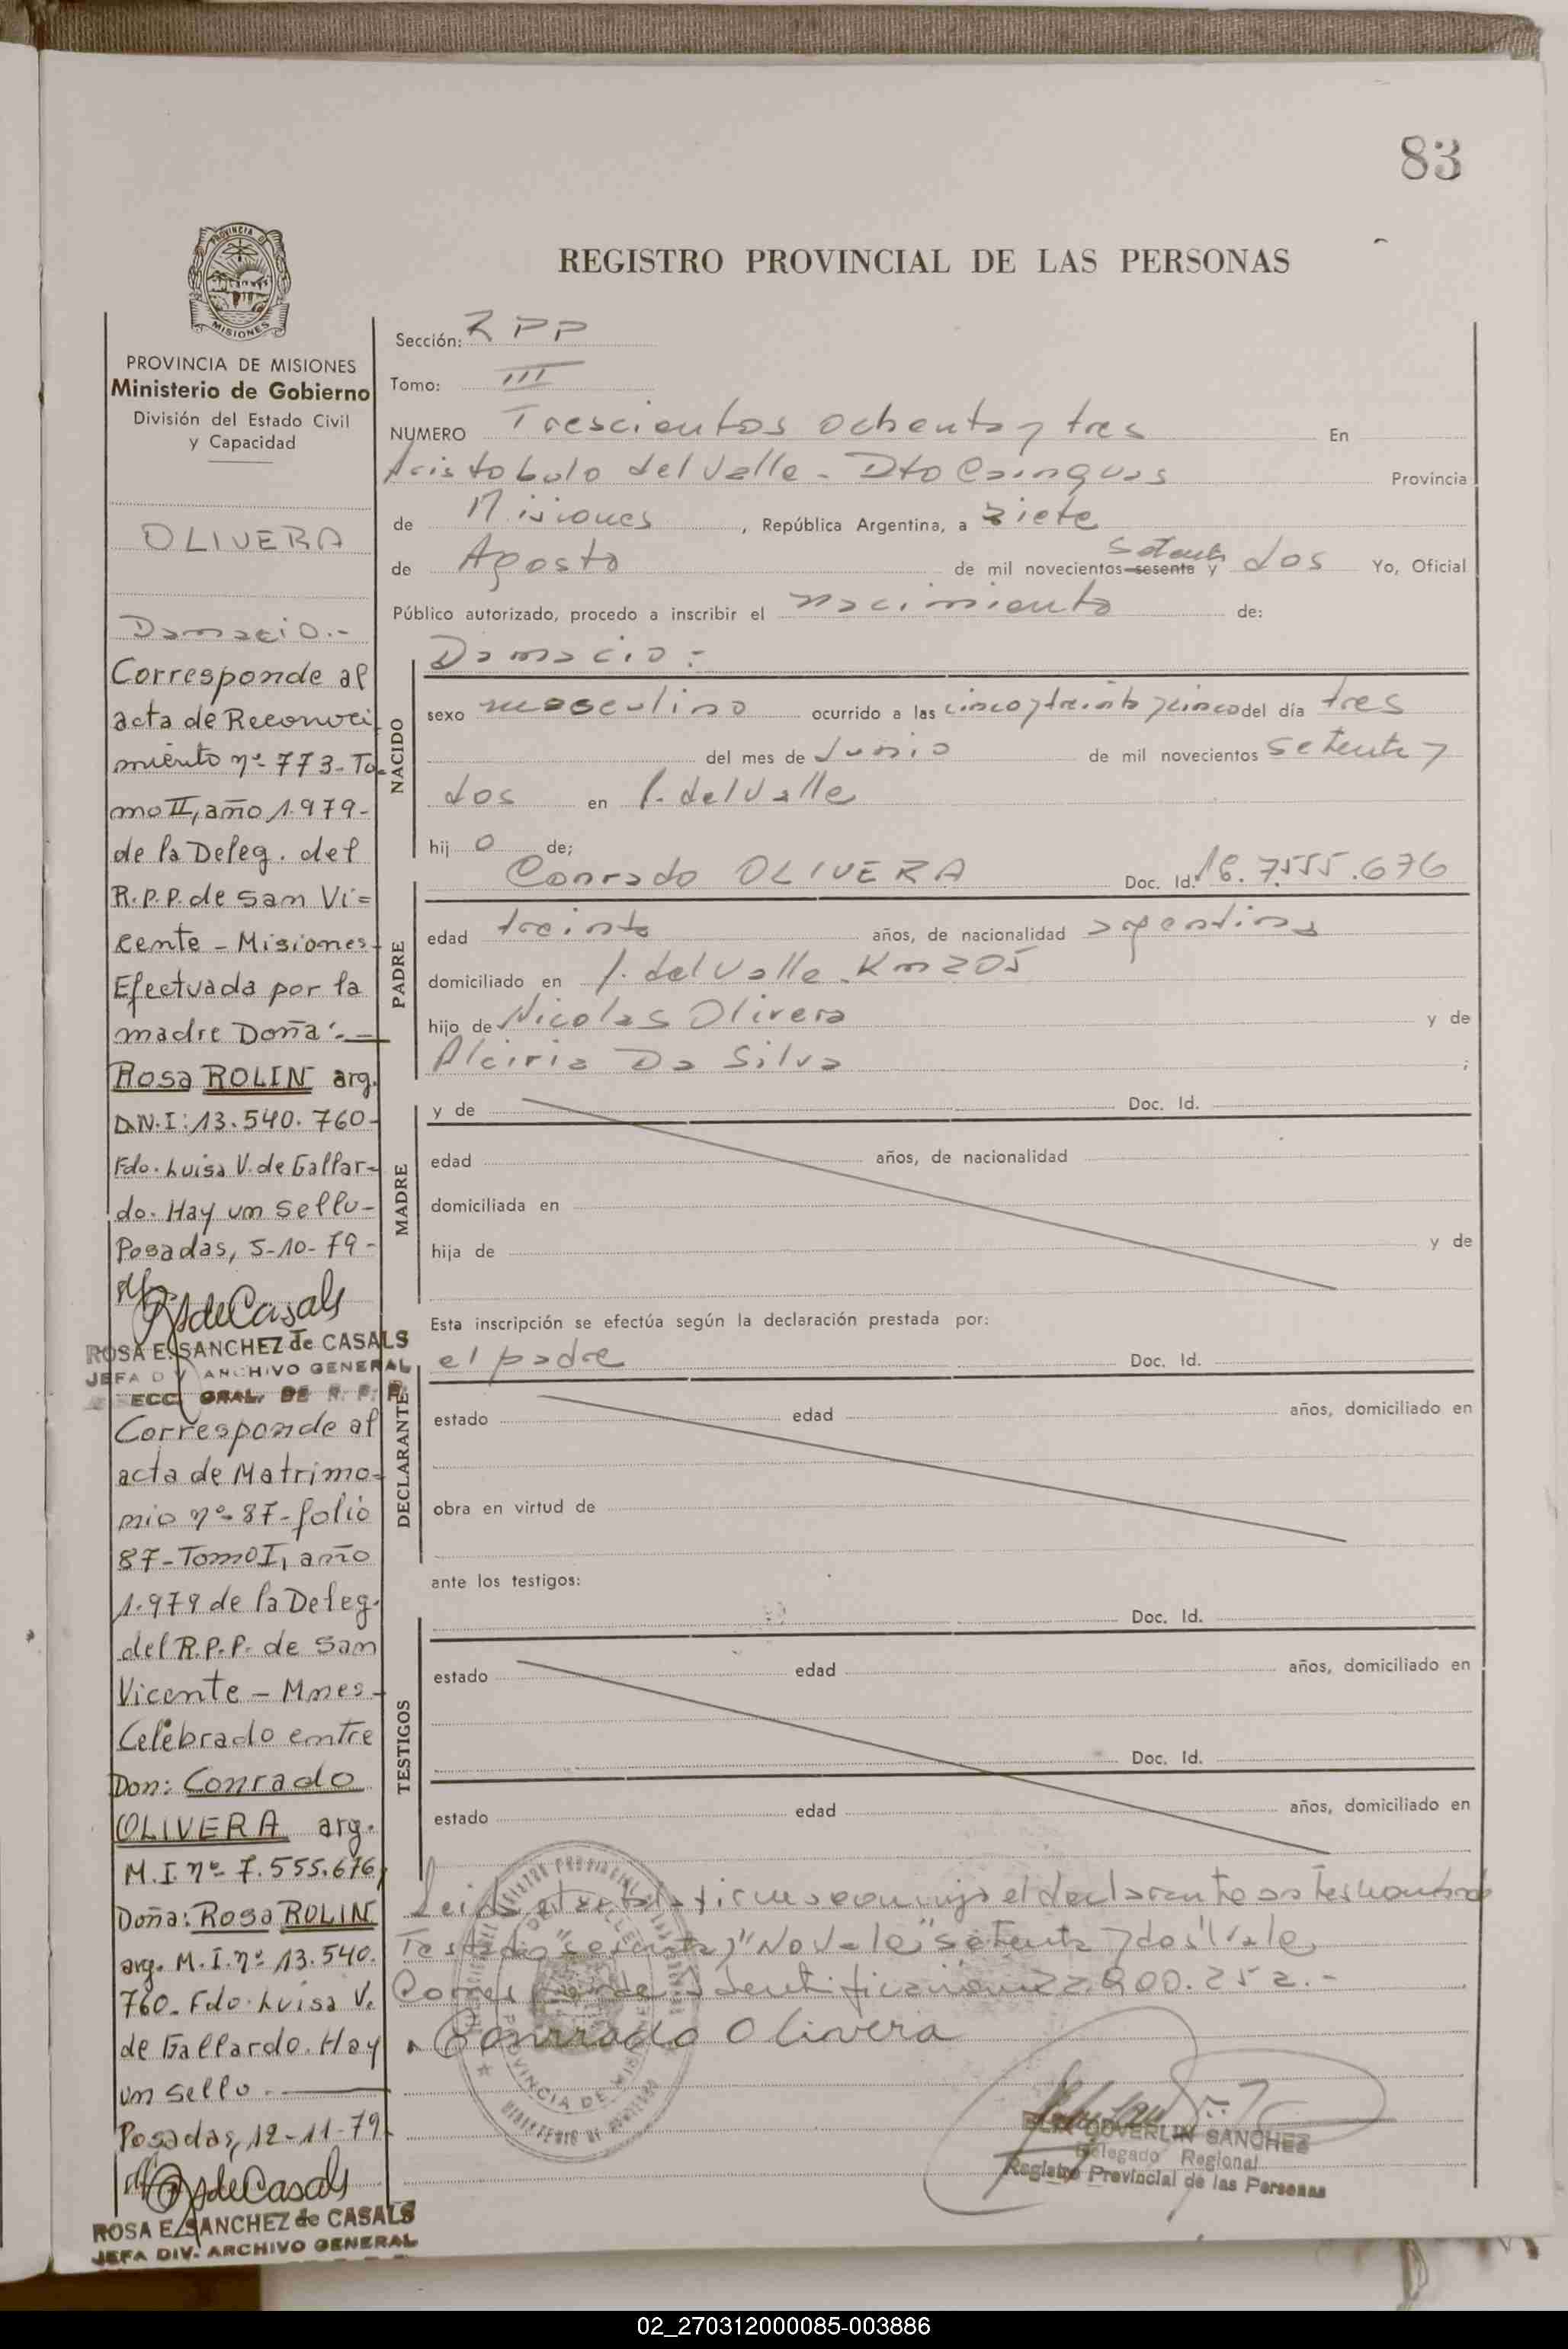 83
REGISTRO PROVINCIAL DE LAS PERSONAS
PROVINCIA DE MISIONES
Ministerio de Gobierno
División del Estado Civil
y Capacidad
OLIVERA
Damacio.-
Corresponde al
acta de Reconoci
miento nº 773-To
mo II, año 1.979-
de la Deleg. del
R.P.P. de San Vi=
cente - Misiones-
Efectuada por la
madre Doña:-
Rosa ROLIN arg.
D.N.I: 13.540.760-
Fdo. Luisa V. de Gallar-
do. Hay un Sello-
Posadas, 5-10-79-
RSdeCasals
ROSA E. SANCHEZ de CASALS
JEFA DIV ARCHIVO GENERAL
ECC. GRAL. DE R. P. P.
Corresponde al
acta de Matrimo-
nio nº 87-folio
87-Tomo I, año
1.979 de la Deleg.
del R.P.P. de San
Vicente - Mnes-
Celebrado entre
Don: Conrado
OLIVERA arg.
M.I. nº 7.555.676,
Doña: Rosa ROLIN
arg. M.I. nº 13.540.
760. Fdo. Luisa V.
de Gallardo. Hay
un sello.
Posadas, 12-11-79.
RSdeCasals
ROSA E. SANCHEZ de CASALS
JEFA DIV. ARCHIVO GENERAL
Sección: RPP
Tomo: III
NUMERO Trescientos ochenta y tres En
Aristobulo del Valle - Dto Cainguas Provincia
de Misiones, República Argentina, a siete
de Agosto de mil novecientos sesenta y setenta dos Yo, Oficial
Público autorizado, procedo a inscribir el nacimiento de:
Damacio:-
NACIDO
sexo masculino ocurrido a las cinco y treinta y cinco del día tres
del mes de Junio de mil novecientos setenta y
dos en A. del Valle
hij o de;
PADRE
Conrado OLIVERA Doc. Id. 7.555.676
edad treinta años, de nacionalidad argentina
domiciliado en A. del Valle. Km 205
hijo de Nicolas Olivera y de
Alciria Da Silva ;
MADRE
y de Doc. Id.
edad años, de nacionalidad
domiciliada en
hija de y de
Esta inscripción se efectúa según la declaración prestada por:
DECLARANTE
el padre Doc. Id.
estado edad años, domiciliado en
obra en virtud de
ante los testigos:
TESTIGOS
Doc. Id.
estado edad años, domiciliado en
Doc. Id.
estado edad años, domiciliado en
Leida el acta la firma conmigo el declarante
Testado "sesenta y" No Vale "setenta y dos" Vale
Corresponde Identificacion 22.900.252.-
Conrrado Olivera
PROVINCIA DE MISIONES
COVERLIN SANCHEZ
Delegado Regional
Registro Provincial de las Personas
02_270312000085-003886